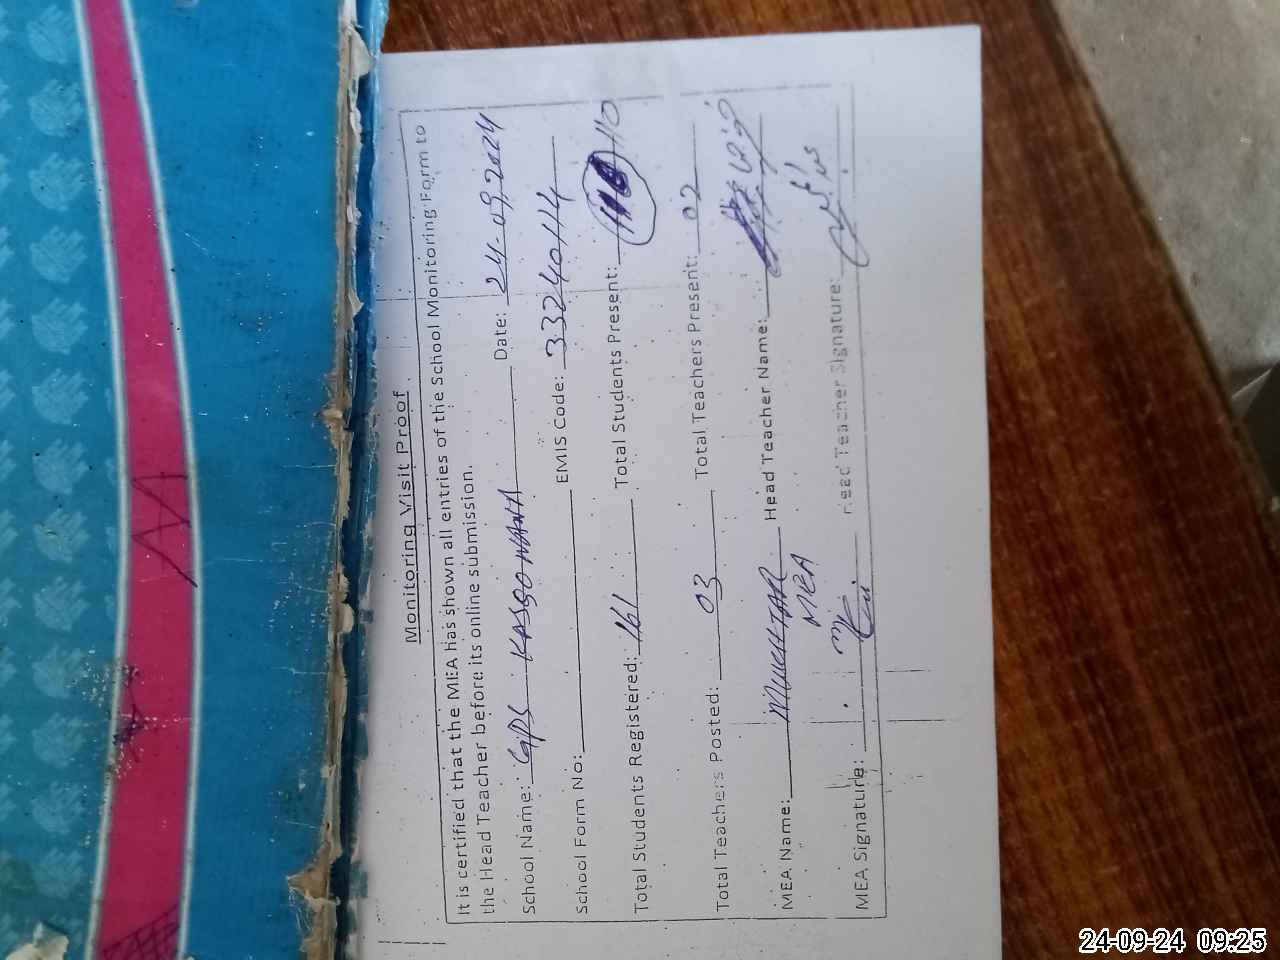 Monitoring Visit Proof
It is certified that the MEA has shown all entries of the School Monitoring Form to
the Head Teacher before its online submission.
School Name: GPS KASSOWANA Date: 24-09-2024
School Form No: EMIS Code: 33240114
Total Students Registered: 161 Total Students Present: 110
Total Teachers Posted: 03 Total Teachers Present: 02
MEA Name: MUKHTAR Head Teacher Name:
MEA
MEA Signature: Head Teacher Signature:
24-09-24 09:25